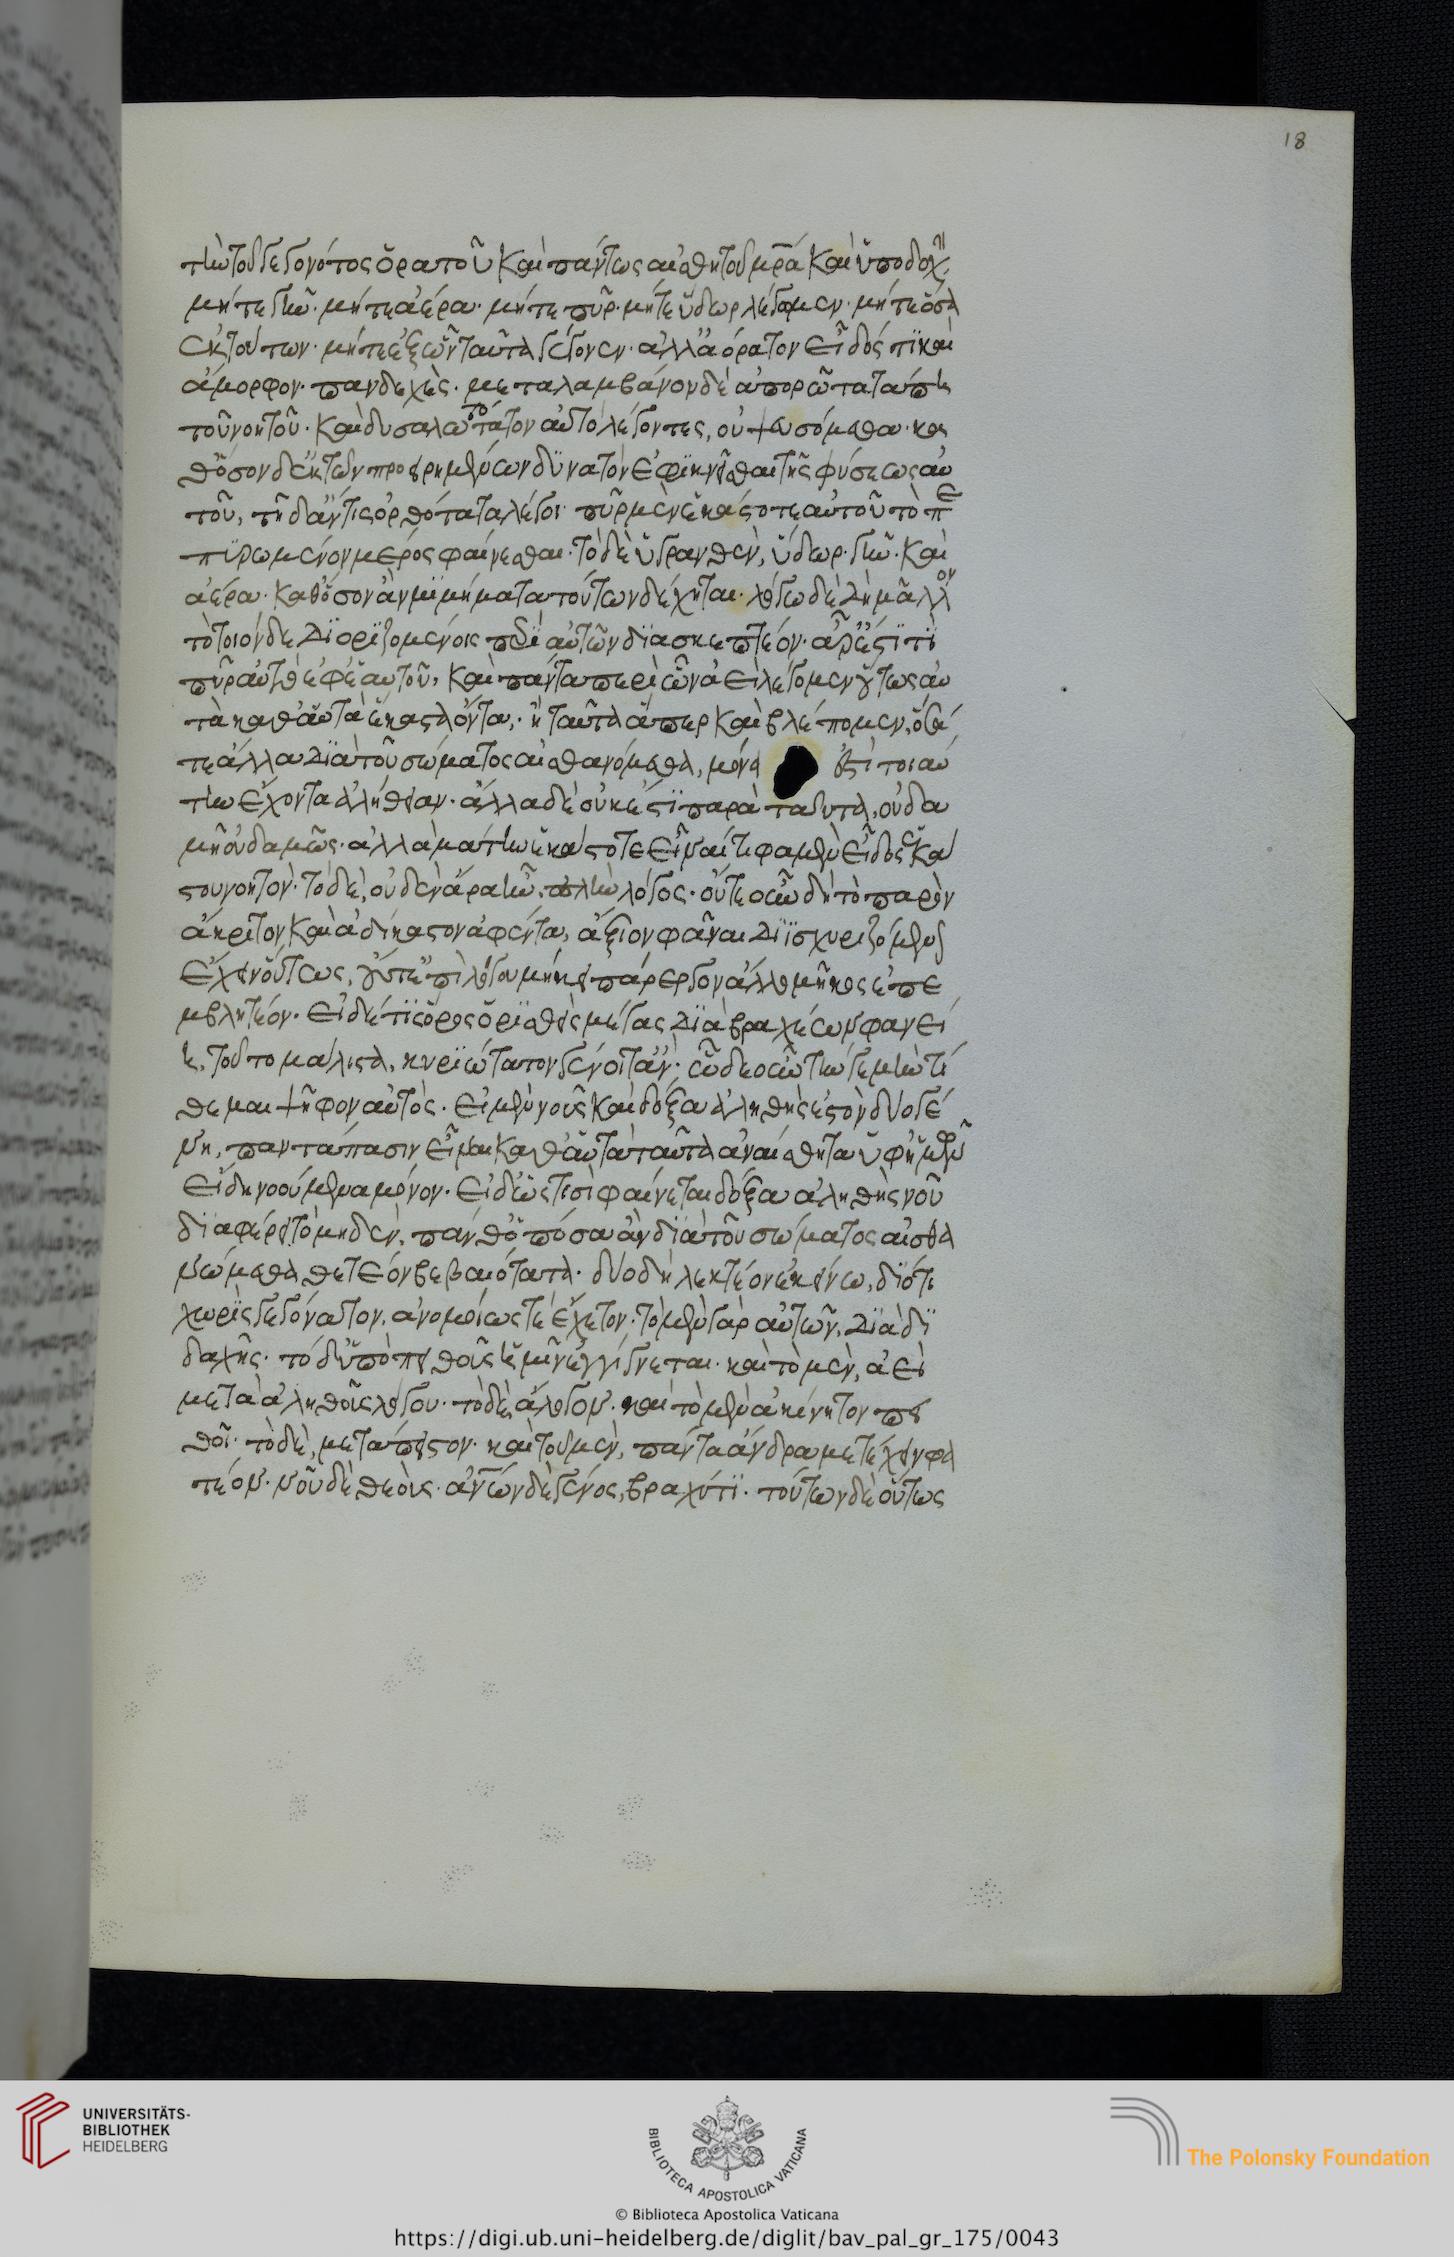 τὴν τοῦ γεγονότος ὁρατοῦ καὶ πάντως αἰσθητοῦ μρα καὶ ὑποδοχὴ
μήτε γῆν· μήτε ἀέρα· μήτε πῦρ· μήτε ὕδωρ λέγομεν· μήτε ὅσα
ἐκ τούτων· μήτε ἐξ ὧν ταῦτα γέγονεν· ἀλλ' ἀόρατον εἶδός τϊ καὶ
ἄμορφον· πανδεχὲς· μεταλαμβάνον δὲ ἀπορώτατα πη
τοῦ νοητοῦ· καὶ δυσαλωτότατον αὐτὸ λέγοντες, οὐ ψευσόμεθα· κα
θ' ὅσον δ' ἐκ τῶν προειρημένων δϋνατὸν ἐφϊκνεῖσθαι τῆς φύσεως αὐ
τοῦ, τῇδ' ἄν τις ὀρθότατα λέγοι· πῦρ μὲν ἑκάστοτε αὐτοῦ τὸ πε
πϋρωμένον μέρος φαίνεσθαι· τὸ δὲ ὑγρανθὲν, ὕδωρ· γῆν· καὶ
ἀέρα· καθ' ὅσον ἂν μϊμήματα τούτων δέχηται· λόγω δὲ δὴ μᾶλλον
τὸ τοιόνδε δϊορϊζομένοις περὶ αὐτῶν δϊασκεπτέον· ἆρ' ἔστϊ τὶ
πῦρ αὐτὸ ἐφ' ἑαυτοῦ, καὶ πάντα περὶ ὧν ἀεὶ λέγομεν οὕτως αὐ
τὰ καθ' αὑτὰ ἕκαστα ὄντα,· ἢ ταῦτα ἅπερ καὶ βλέπομεν, ὅσά
τε ἄλλα δϊὰ τοῦ σώματος αἰσθανόμεθα, μόνα ἐστὶ τοιαύ
την ἔχοντα ἀλήθειαν· ἄλλα δὲ οὐκ έστϊ παρὰ ταῦτα, οὐδα
μῆ οὐδαμῶς· ἀλλὰ μάτην ἑκάστοτε εἶναί τι φαμὲν εἶδος ἑκά
στου νοητόν· τὸ δὲ, οὐδὲν ἄρα ἦν, πλὴν λόγος· οὔτε οὖν δὴ τὸ παρὸν
ἄκριτον καὶ ἀδίκαστον ἀφέντα, ἄξιον φάναι δϊϊσχυριζόμενον
ἔχειν οὕτως, οὔτ' ἐπὶ λόγου μήκει πάρεργον ἄλλο μῆκος ἐπε
μβλητέον· εἰ δέ τϊς ὅρος ὁρϊσθεὶς μέγας δϊὰ βραχέων φανεί
η, τοῦτο μάλιστα, κυρϊώτατον γένοιτ' ἄν· ὧδε οὖν τὴν γεμὴν τί
θεμαι ψῆφον αὐτὸς· εἰ μὲν νοῦς καὶ δόξα ἀληθής ἐστὸν δύο γέ
νη, παντάπασιν εἶναι καθ' αὑτὰ ταῦτα ἀναίσθητα ὑφ' ἡμῶν
εἴδη νοούμενα μόνον· εἰ δ' ὥς τισὶ φαίνεται δόξα ἀληθὴς νοῦ
δϊαφέρει τὸ μηδὲν, πάνθ' ὁπόσα ἂν δϊὰ τοῦ σώματος αἰσθα
νώμεθα θετέον βεβαιότατα· δύο δὴ λεκτέον ἐκείνω, δϊότι
χωρὶς γεγόνατον, ἀνομοίως τὲ ἔχετον· τὸ μὲν γὰρ αὐτῶν, δϊὰ δϊ
δαχῆς· τὸ δ' ὑπὸ πειθοῦς ἡμῖν ἐγγίγνεται· καὶ τὸ μὲν, ἀεὶ
μετὰ ἀληθοῦς λόγου· τὸ δὲ, ἄλογον· καὶ τὸ μὲν ἀκίνητον πει
θοῖ· τὸ δὲ, μεταπειστον· καὶ τοῦ μὲν, πάντα ἄνδρα μετέχειν φα
τέον· νοῦ δὲ θεοὺς· ἀνων δὲ γένος, βραχύ τϊ· τούτων δὲ οὕτως
18
UNIVERSITÄTS-
BIBLIOTHEK
HEIDELBERG
BIBLIOTECA APOSTOLICA VATICANA
The Polonsky Foundation
© Biblioteca Apostolica Vaticana
https://digi.ub.uni-heidelberg.de/diglit/bav_pal_gr_175/0043